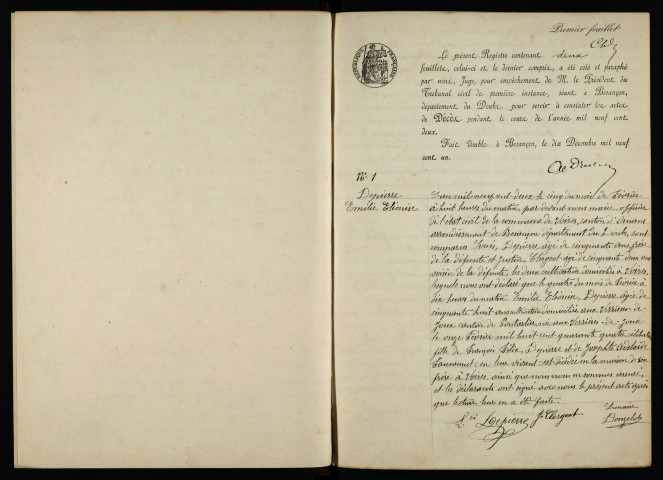 Premier feuillet
RÉPUBLIQUE FRANÇAISE
Le présent Registre contenant deux
feuillets, celui-ci et le dernier compris, a été coté et paraphé
par nous, Juge, pour empêchement de M. le Président du
Tribunal civil de première instance, séant à Besançon,
département du Doubs, pour servir à constater les actes
de Décès pendant le cours de l'année mil neuf cent
deux.
Fait double à Besançon, le dix Décembre mil neuf
cent un.
N° 1
Depierre
Emilie Eléonise
L'an mil neuf cent deux le cinq du mois de Février
à huit heures du matin par devant nous maire officier
de l'état civil de la commune de Voires, canton d'Ornans
arrondissement de Besançon département du Doubs, sont
comparus Depierre âgé de cinquante ans frère
de la défunte et Justin Clergeot âgé de cinquante deux ans
voisin de la défunte les deux cultivateurs domiciliés à Voires,
lesquels nous ont déclaré que le quatre du mois de Février à
dix heures du matin Emilie Eléonise Depierre âgée de
cinquante huit ans domiciliée aux Verrières-de-
Joux canton de Pontarlier, née aux Verrières-de-Joux
le onze Février mil huit cent quarante quatre célibataire
fille de François Félix Depierre et de Josephte
en leur vivant est décédée en la maison de son
frère à Voires, ainsi que nous nous en sommes assuré
et les déclarants ont signé avec nous le présent acte après
que lecture leur en a été faite.
Depierre J. Clergeot
Le maire
Bongelot